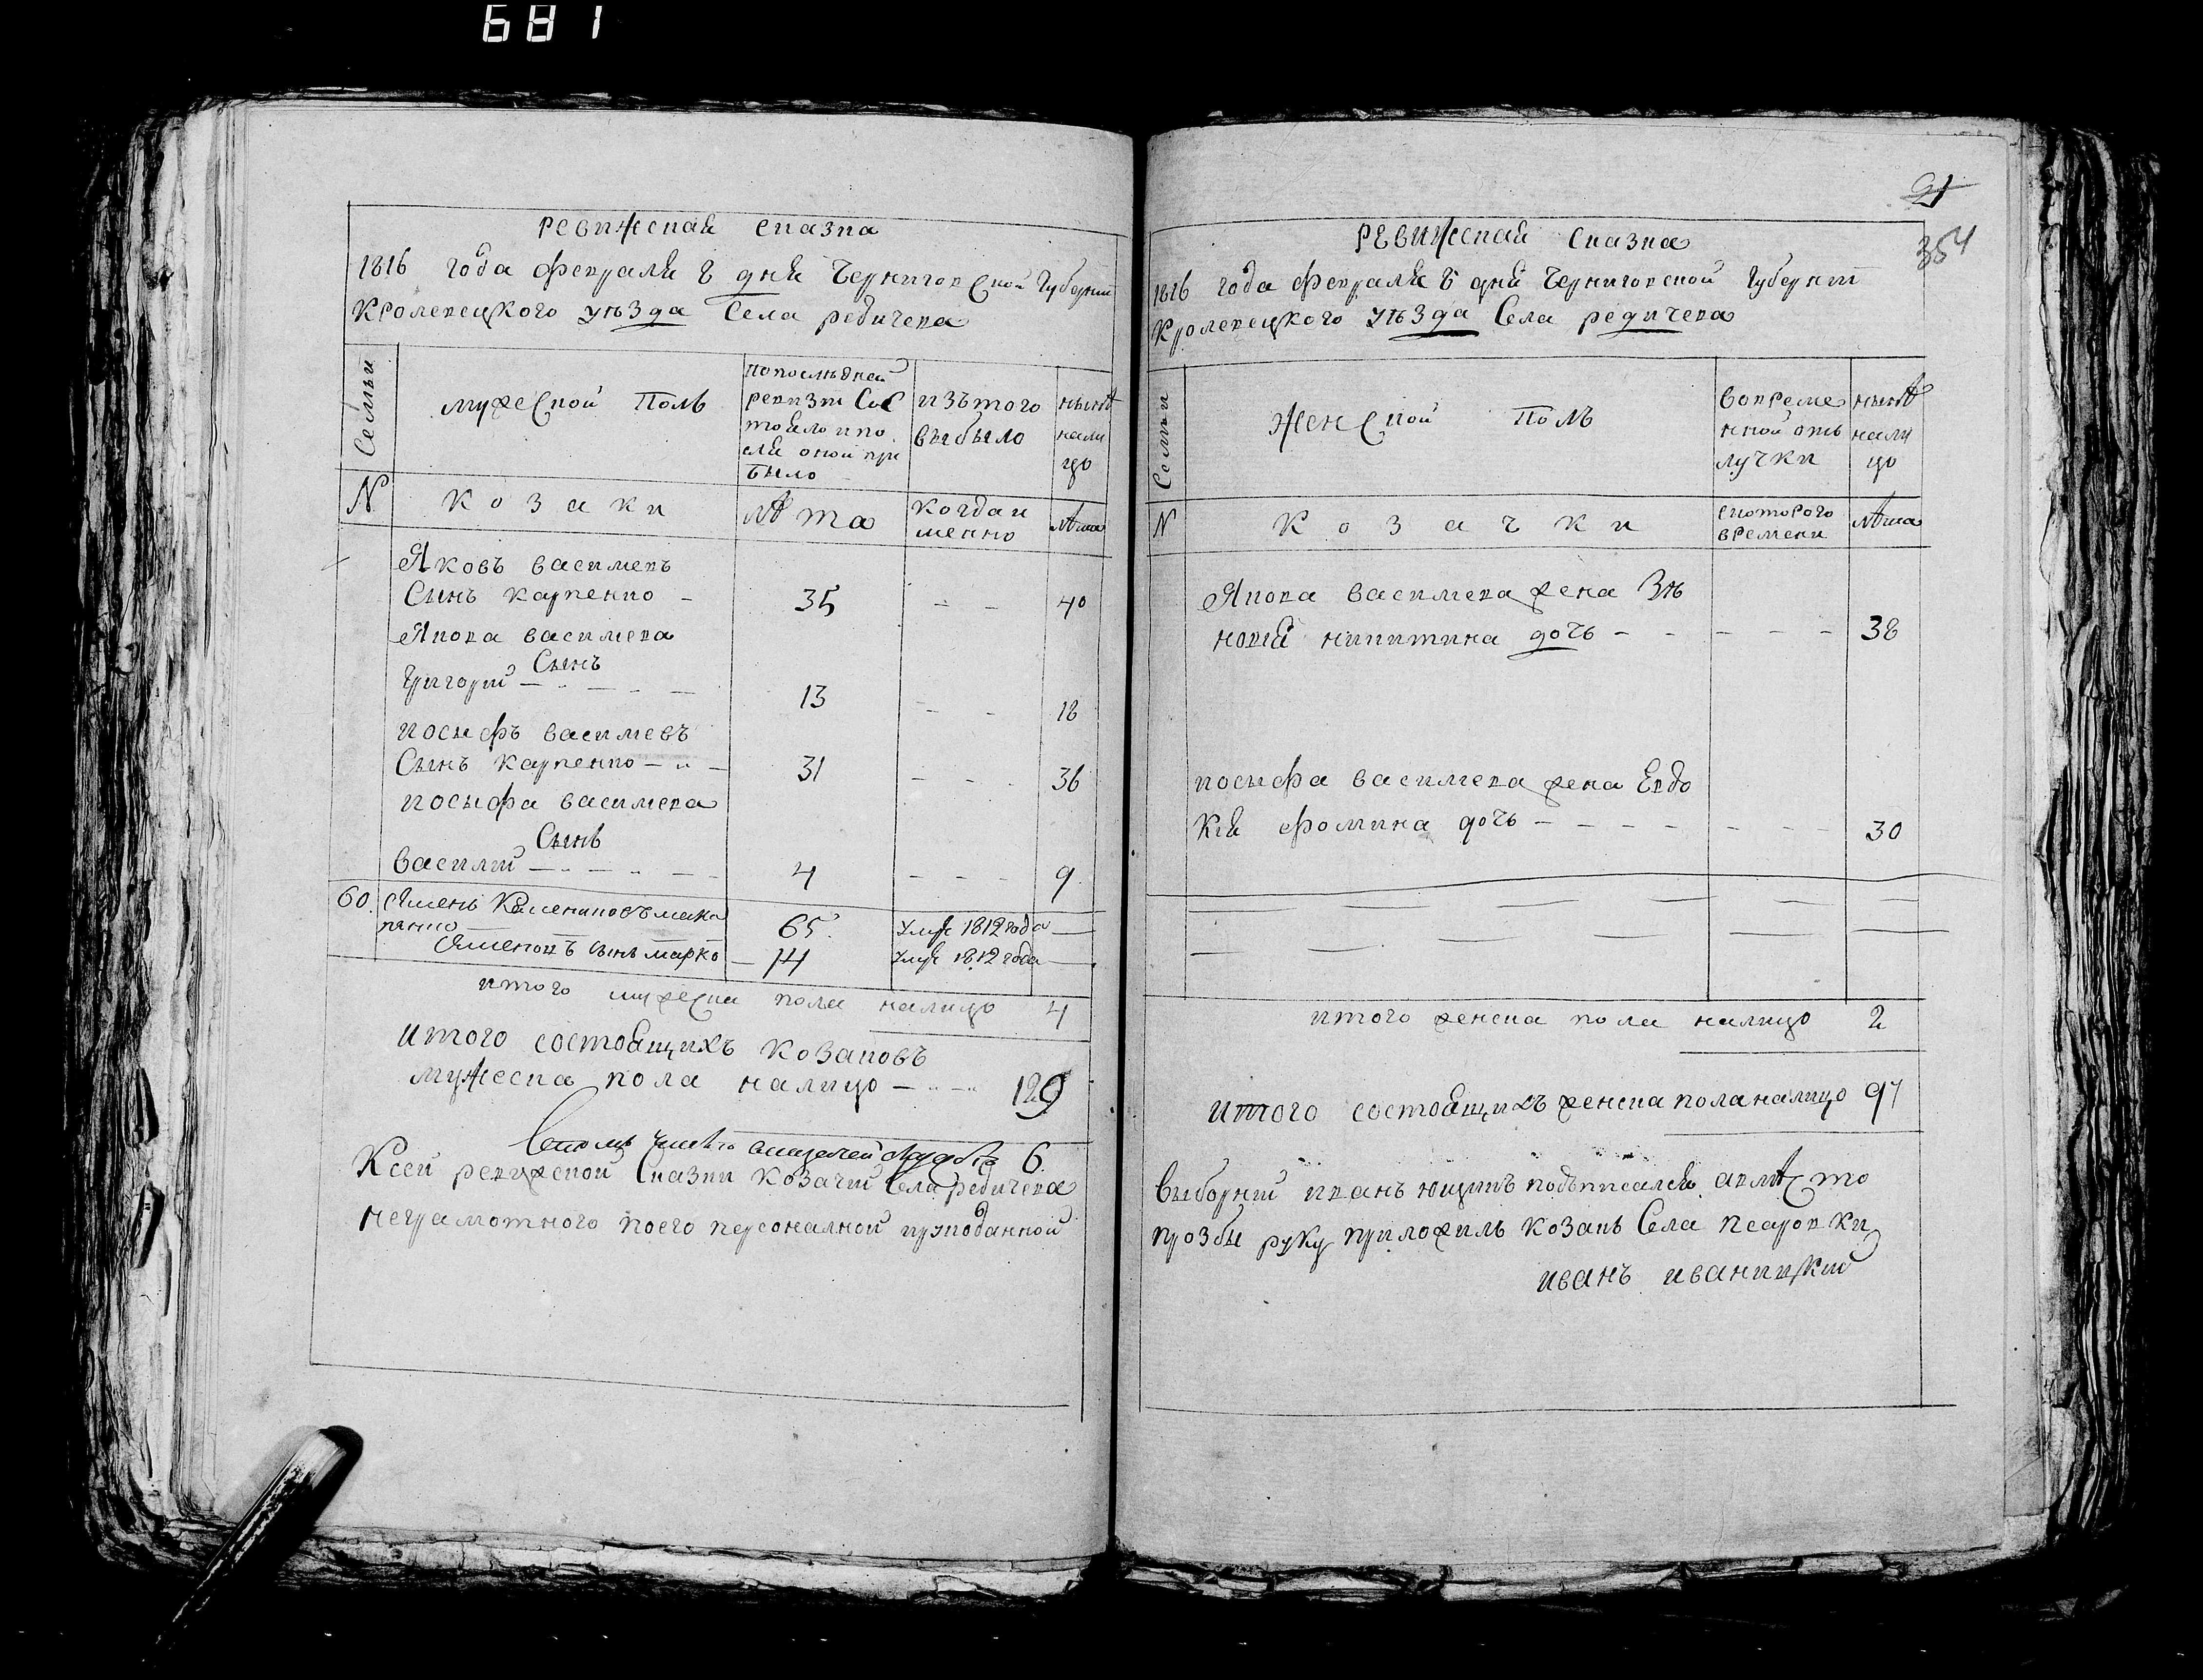 681
Ревижская сказка
1816 года февраля 8 дня Черниговской Губернии
Кролевецкого уѣзда Села редичева
Семьи
мужеской Полъ
Попослѣдней
ревизіи Сос
тояло ипо
сля оной при
было
изътого
выбыло
нынѣ
нали
цо
N
козаки
лѣта
когда и
менно
лѣта
Яковъ василиевъ
Сынъ карпенко - 35 - - 40
Якова василиева
Сынъ
Григорій - - - - 13 - - 18
иосыфъ василиевъ
Сынъ карпенко - - - 31 - - - 36
иосыфа василиева
Сынъ
василій - - - - - 4 - - - 9
60. 65. умре 1812 года -
сынъ марко - 14 умре 1812 года -
итого мужеска пола налицо 4
Итого состоящихъ козаковъ
мужеска пола налицо - - - 129
6
Ксей ревижской Сказки козачій Села редичева
неграмотного поего персоналной
21
354
Ревижская Сказка
1816 года февраля 8 дня Черниговской Губерніи
Кролевецкого уѣзда Села редичева
Семьи
Женской Полъ
вовреме
нной отъ
лучки
нынѣ
нали
цо
N
Козачки
скоторого
времени
лѣта
Якова василиева жена Зѣ
новия никитина дочь - - - - - 38
иосыфа василиева жена Евдо
кия фомина дочь - - - - - - - 30
итого женска пола налицо 2
Итого состоящихъ женска пола налицо 97
Выборній иванъ ющикъ подъписался, авмѣсто
прозбы руку приложилъ козакъ Села псаровки
иванъ иваницкий